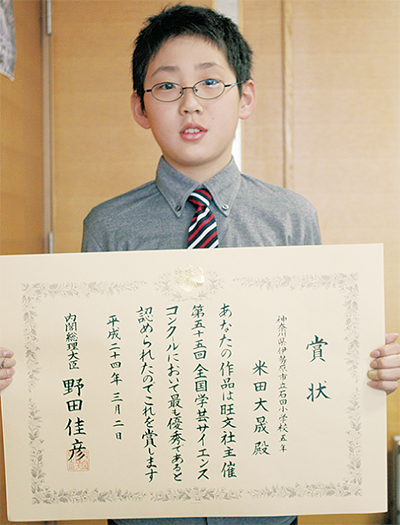 賞状
神奈川県伊勢原市立石田小学校五年
米田大晟殿
あなたの作品は旺文社主催
第五十五回全国学芸サイエンス
コンクールにおいて最も優秀であると
認められたのでこれを賞します
平成二十四年三月二日
内閣総理大臣
野田佳彦